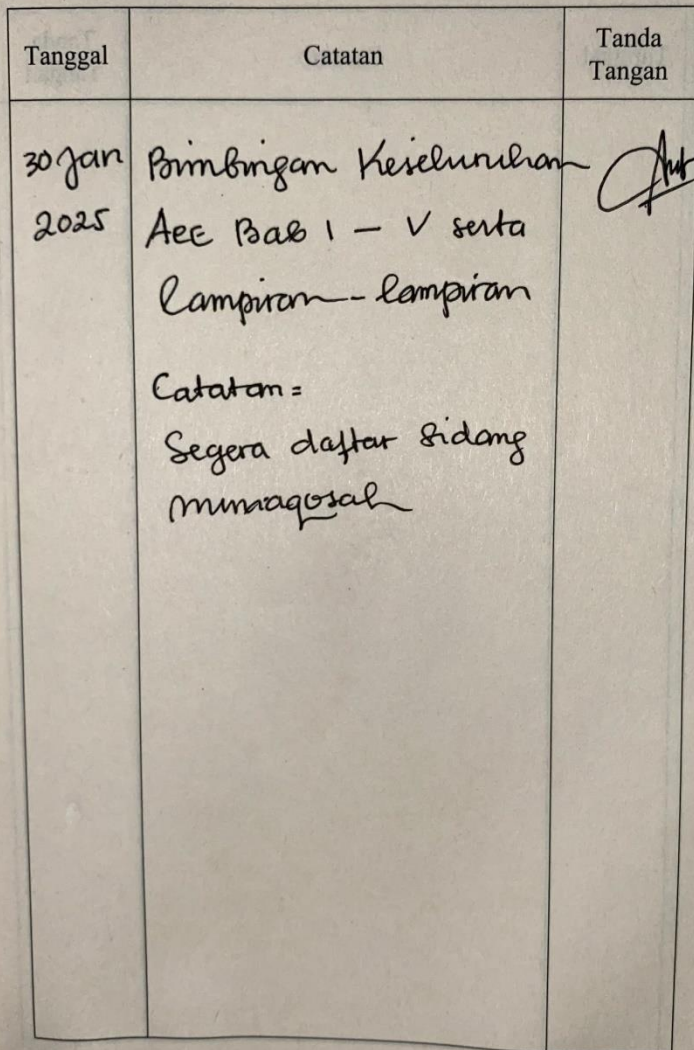 Tanggal Catatan Tanda Tangan
30 Jan Bimbingan Keseluruhan
2025 Acc Bab 1 - V serta
lampiran - lampiran
Catatan =
Segera daftar sidang
munaqosah